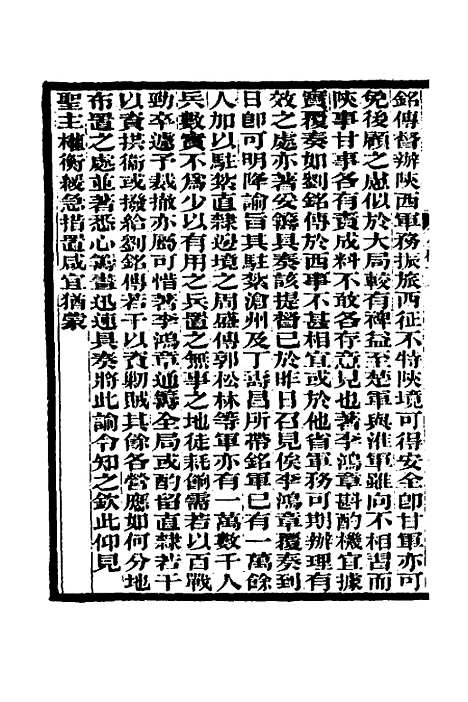 銘傳督辦陝西軍務振旅西征不特陝境可得安全即甘軍亦可
免後顧之慮似於大局較有裨益至楚軍與淮軍雖向不相習而
陝事甘事各有責成料不敢各存意見也著李鴻章斟酌機宜據
實覆奏如劉銘傳於西事不甚相宜或於他省軍務可期辦理有
效之處亦著妥籌具奏該提督已於昨日召見俟李鴻章覆奏到
日即可明降諭旨其駐紮滄州及丁壽昌所帶銘軍已有一萬餘
人加以駐紮直隸邊境之周盛傳郭松林等軍亦有一萬數千人
兵數實不為少以有用之兵置之無事之地徒耗餉需若以百戰
勁卒遽予裁撤亦屬可惜著李鴻章通籌全局或酌留直隸若干
以資拱衛或撥給劉銘傳若干以資勦賊其餘各營應如何分地
布置之處並著悉心籌畫迅速具奏將此諭令知之欽此仰見
聖主權衡緩急措置咸宜猶蒙